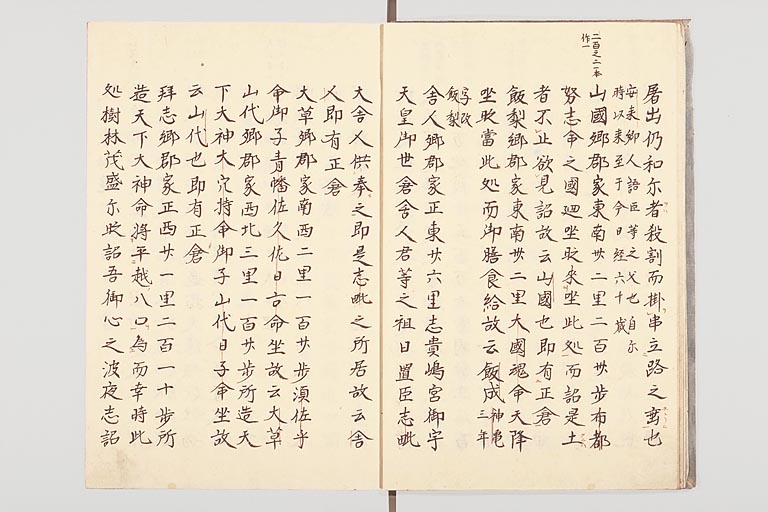 二百之二一本
作一
屠出仍和尓者殺割而掛串立路之
安来郷人語臣等之父也自尓
時以来至于今日経六十歳
山國郷郡家東南卅二里二百卅歩布都
努志命之國廻坐時来坐此処而詔是土
者不止欲見詔故云山國也即有正倉
飯梨郷郡家東南卅二里大國魂命天降
坐時當此処而御膳食給故云飯成神亀三年
字改
飯梨
舎人郷郡家正東廿六里志貴嶋宮御宇
天皇御世倉舎人君等之祖日置臣志毗
大舎人供奉之即是志毗之所居故云舎
人即有正倉
大草郷郡家南西二里一百廿歩須佐乎
命御子青幡佐久佐日古命坐故云大草
山代郷郡家西北三里一百廿歩所造天
下大神大穴持命御子山代日子命坐故
云山代也即有正倉
拜志郷郡家正西廿一里二百一十歩所
造天下大神命将平越八口為而幸時此
処樹林茂盛尓時詔吾御心之波夜志詔